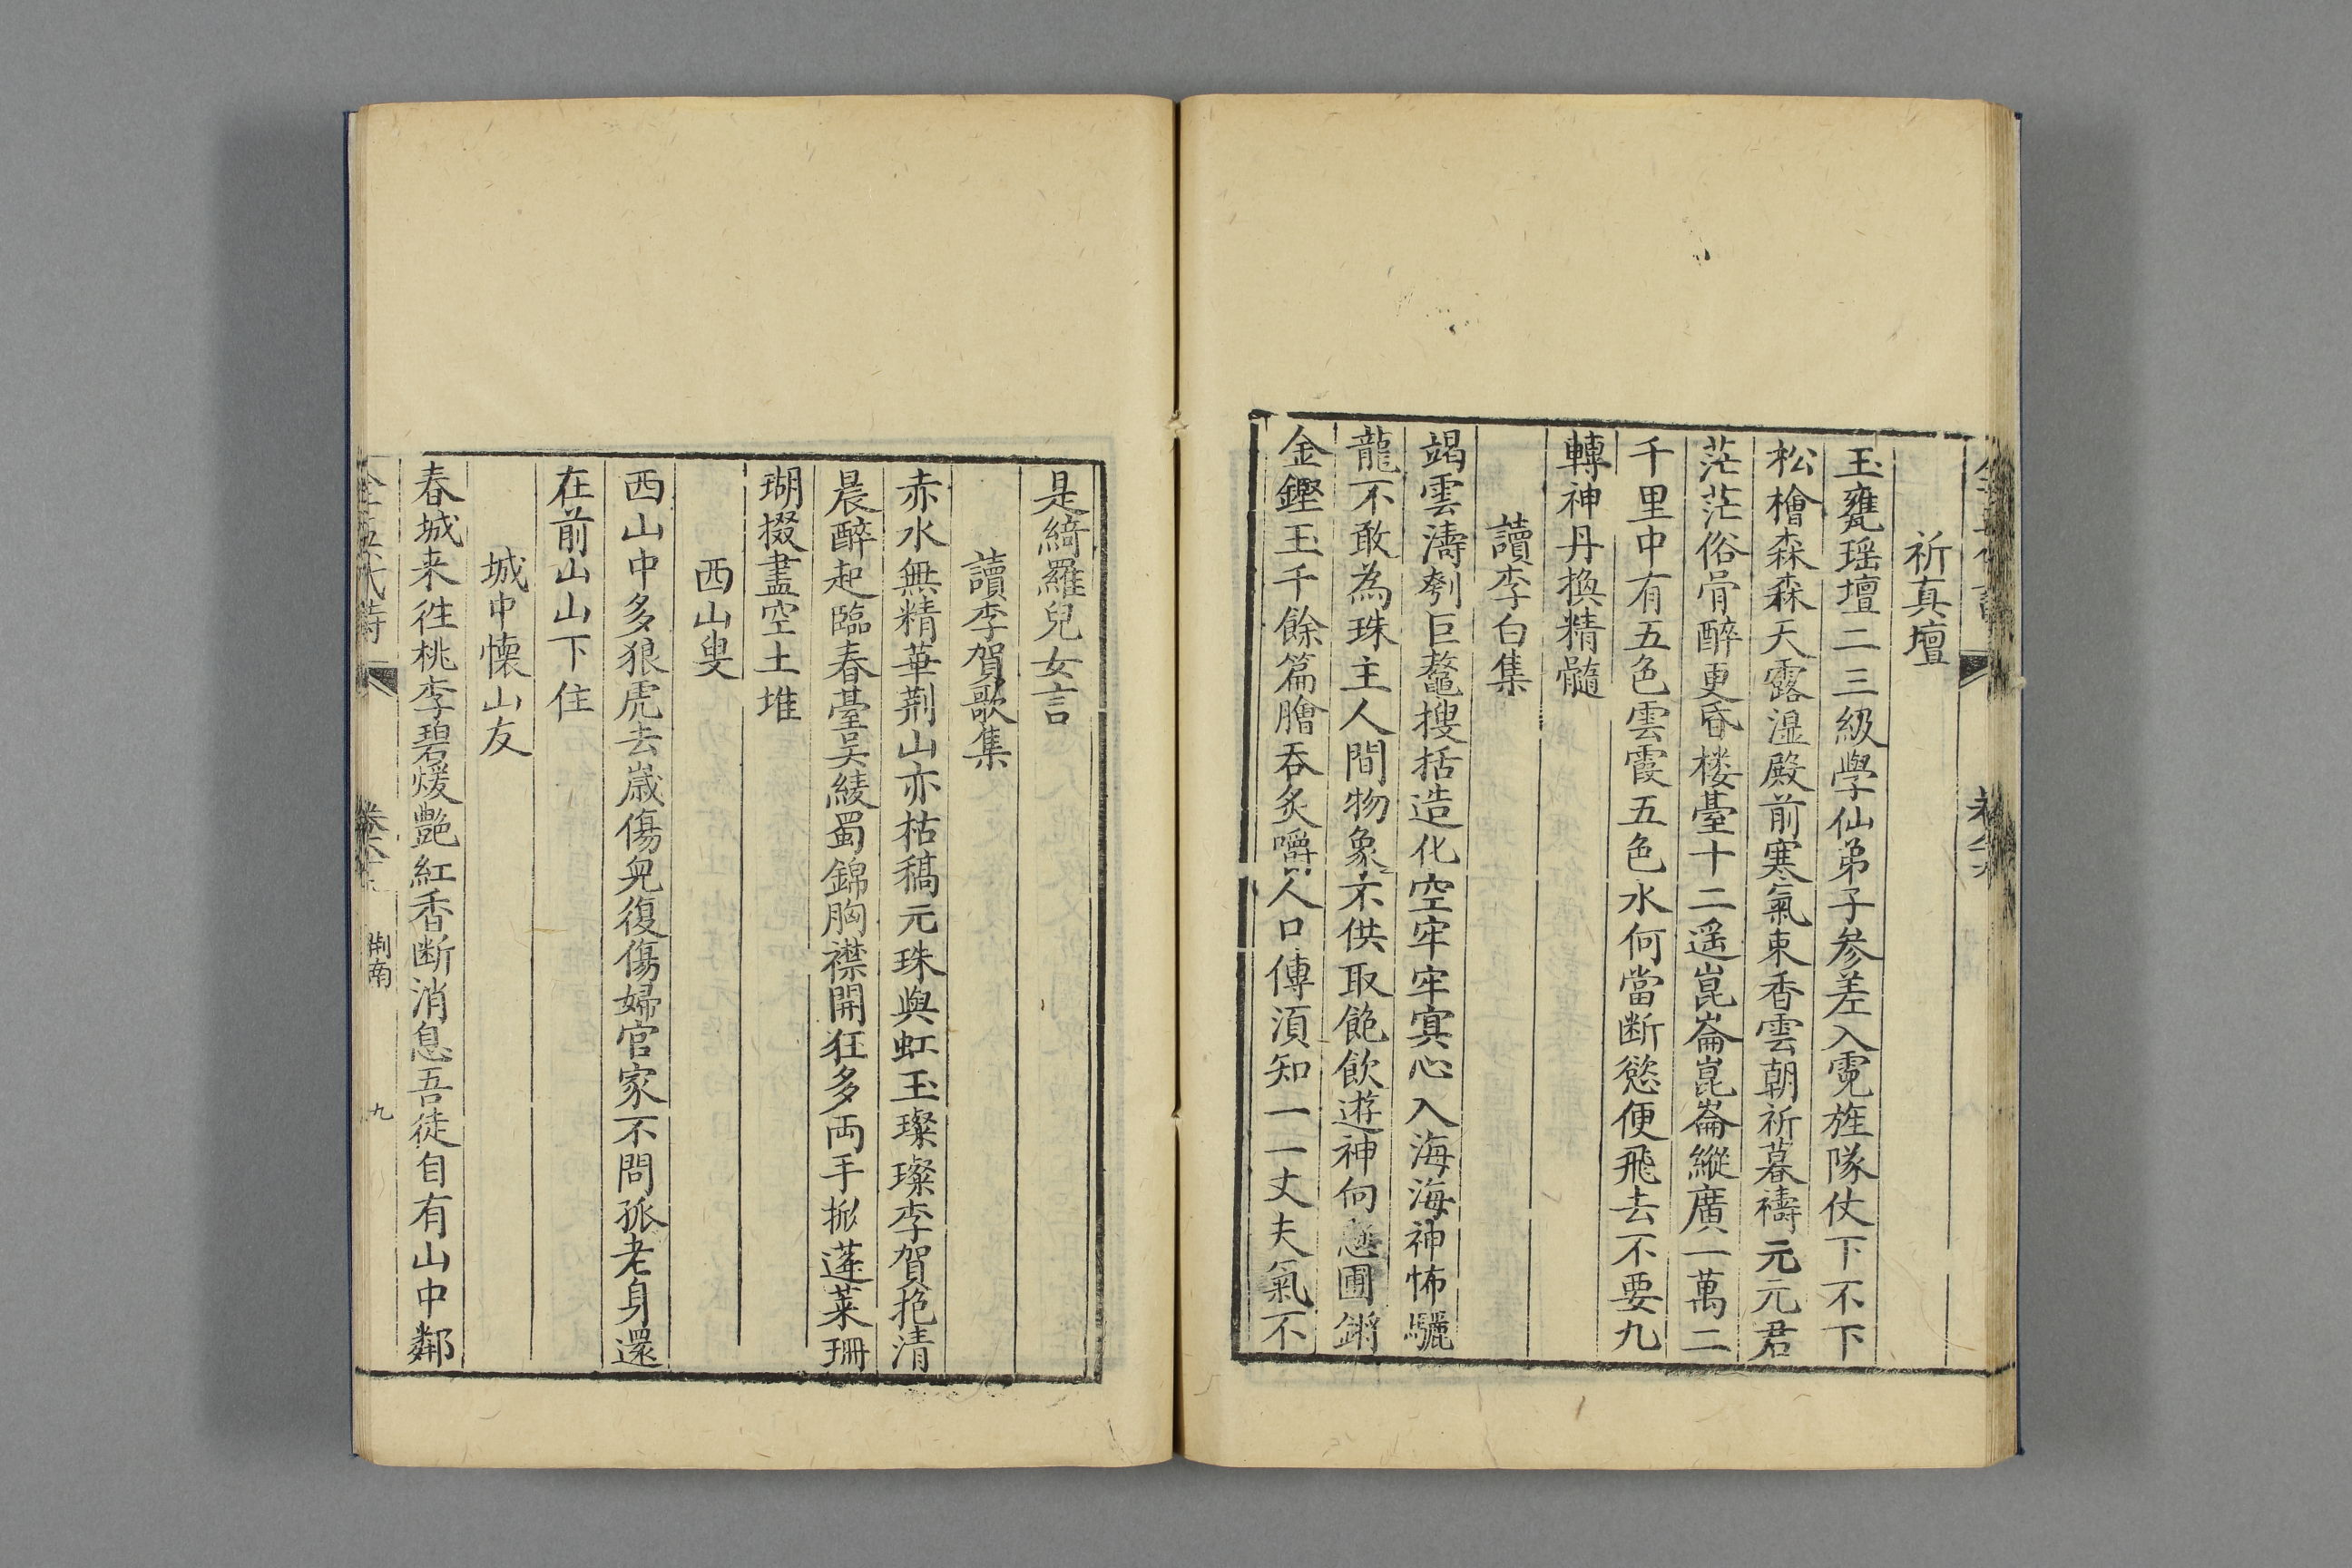 祈真壇
玉甕瑶壇二三級學仙弟子參差入霓旌隊仗下不下
松檜森森天露溼殿前寒氣束香雲朝祈暮禱元元君
茫茫俗骨醉更昏楼臺十二遥崑崙崑崙縱廣一萬二
千里中有五色雲霞五色水何當断慾便飛去不要九
轉神丹換精髓
讀李白集
竭雲濤刳巨鼇搜括造化空牢牢寞心入海海神怖驪
龍不敢為珠主人間物象不供取飽飲遊神向圃鏘
金鏗玉千餘篇膾吞炙嚼人口傳須知一一丈夫氣不
是綺羅兒女言
讀李賀歌集
赤水無精華荆山亦枯稿元珠與虹玉璨璨李賀抱清
晨醉起臨春臺吴綾蜀錦胸襟開狂多両手掀蓬莱珊
瑚掇盡空土堆
西山叟
西山中多狼虎去歲傷兒復傷婦官家不問孤老身還
在前山山下住
城中懐山友
春城来徃桃李碧煖艷紅香断消息吾徒自有山中鄰
全五代詩
荆南
九